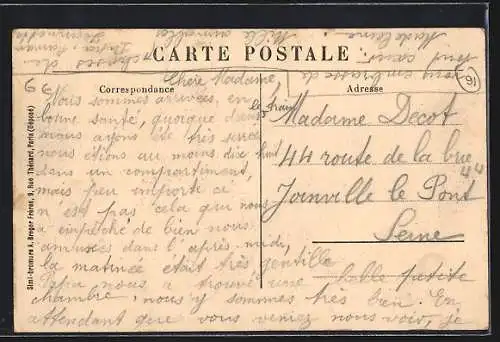 CARTE POSTALE
Correspondance
Adresse
Chère Madame,
Nous sommes arrivées, en
bonne santé, quoique dans le train
nous ayons été très serrées
nous étions au moins dix-huit
dans un compartiment,
mais peu importe ce
n'est pas cela qui nous
a empêché de bien nous
amusées dans l'après-midi,
la matinée était très gentille
Papa nous a trouvé une belle petite
chambre, nous y sommes très bien En
attendant que vous veniez nous voir, je
vous embrasse de
tout cœur.
Madeleine
Madame Decot
44 route de la brie
Joinville le Pont
Seine
44
Simi-bronzure A. Breger Frères, 9, Rue Thénard, Paris (Déposé)